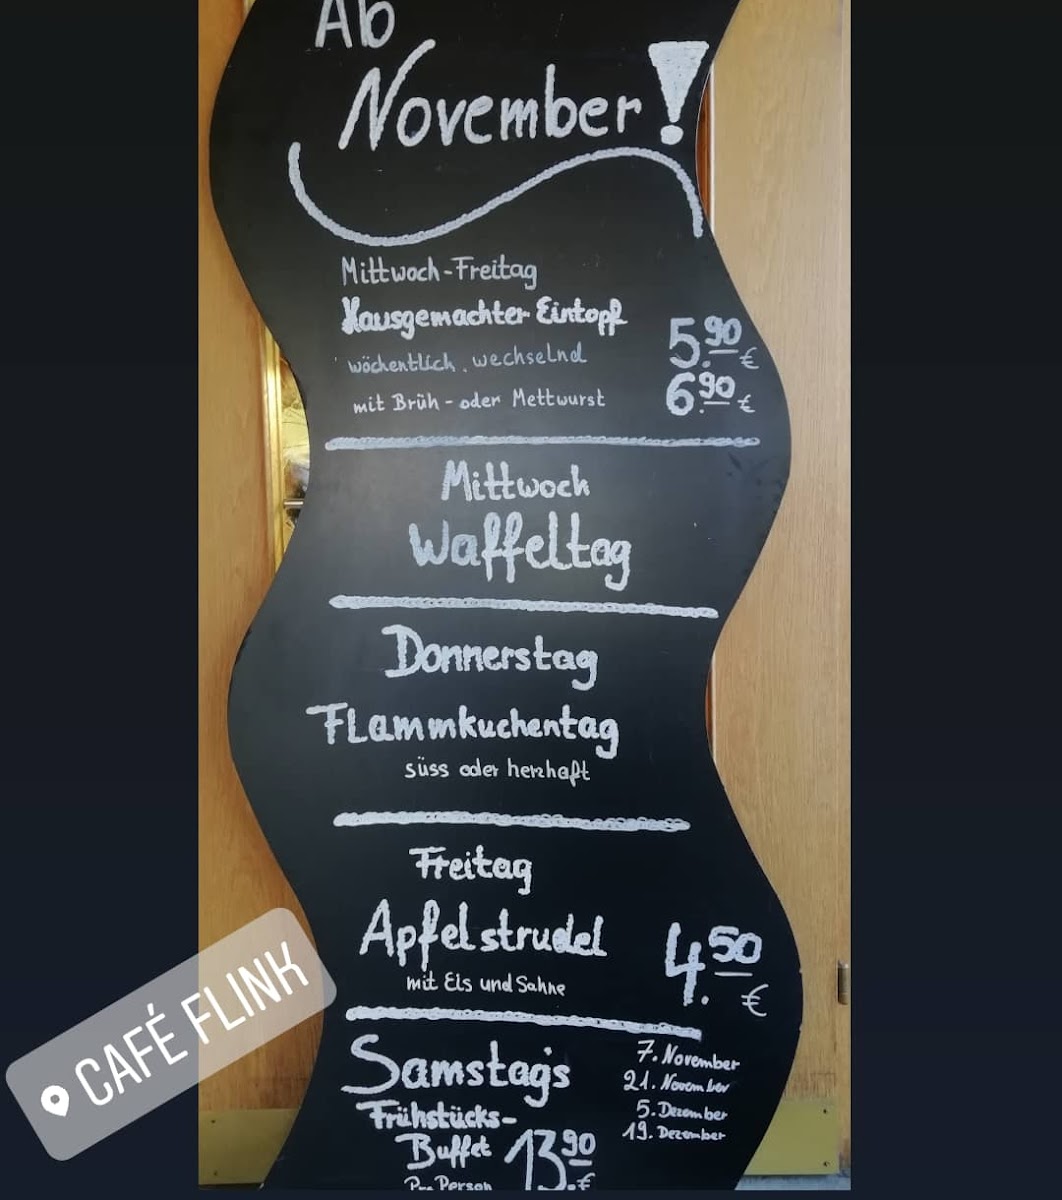 Ab
November!
Mittwoch-Freitag
Hausgemachter Eintopf
5.90 €
wöchentlich, wechselnd
mit Brüh- oder Mettwurst
6.90 €
Mittwoch
Waffeltag
Donnerstag
Flammkuchentag
süss oder herzhaft
Freitag
Apfelstrudel
4.50 €
mit Eis und Sahne
Samstag's
7. November
21. November
5. Dezember
19. Dezember
Frühstücks-
Buffet
13.90 €
Pro Person
CAFÉ FLINK